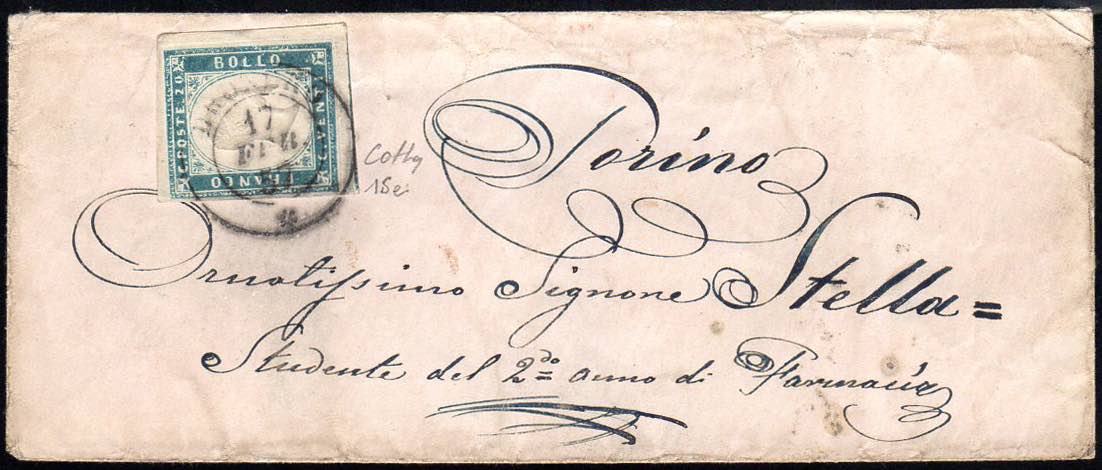 BOLLO
C. POSTE. 20
C. VENTI
FRANCO
17
FEB
57
Cotty
15e
Torino
Ornatissimo Signore Stella=
Studente del 2do anno di Farmacia